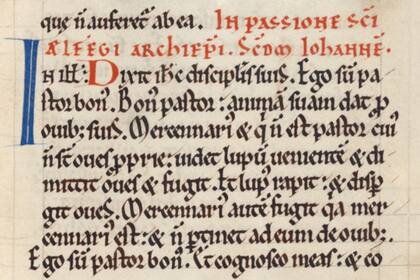 que ñ auferet̃ ab ea. IN PASSIONE S̄C̄I
ÆLFEGI ARCHIEP̄I. SC̄DM̄ IOHANNĒ.
IN ill̄: Dixit ih̄c discipl̄is suis. Ego sū pa
stor bon᷒. Bon᷒ pastor: animā suam dat ꝑ
ouib; suis. Mercennari᷒ & q̄ ñ est pastor cui᷒
ñ sr̄ oues ꝓprie: uidet lupū uenientē & di
mittit oues & fugit. Et lup᷒ rapit: & disꝑ
git oues. Mercennari᷒ autē fugit q̄a mer
cennari᷒ est: & ñ ꝑtinet ad eum de ouib;
Ego sū pastor bon᷒. Et cognosco meas: & co